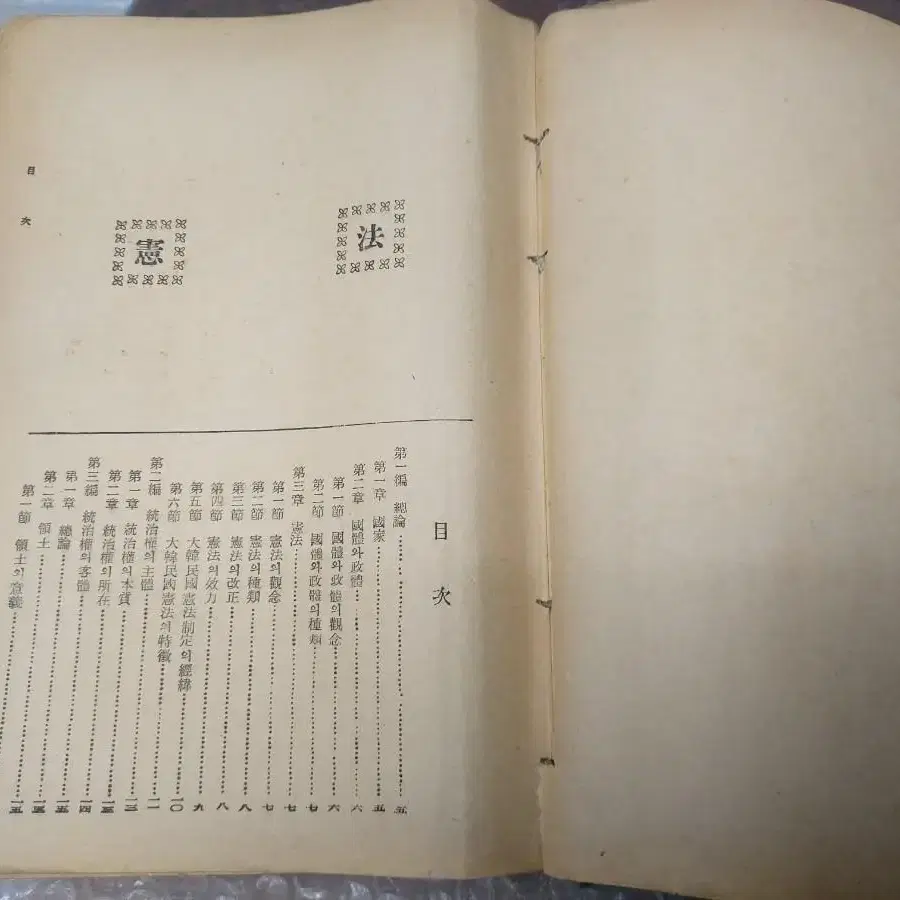 憲 法
目 次
第一編 總論 五
第一章 國家 五
第二章 國體와政體 六
第一節 國體와政體의觀念 六
第二節 國體와政體의種類 七
第三章 憲法 七
第一節 憲法의觀念 七
第二節 憲法의種類 八
第三節 憲法의改正 八
第四節 憲法의效力 九
第五節 大韓民國憲法制定의經緯 一〇
第六節 大韓民國憲法의特徵 一一
第二編 統治權의主體
第一章 統治權의本質
第二章 統治權의所在
第三編 統治權의客體
第一章 總論
第二章 領土
第一節 領土의意義
目 次